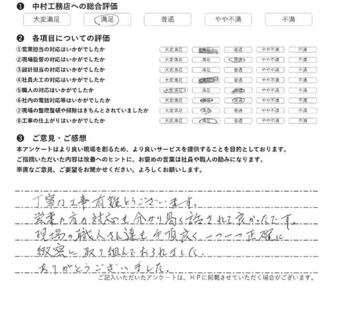 ❶ 中村工務店への総合評価
大変満足 満足 普通 やや不満 不満
❷ 各項目についての評価
①営業担当の対応はいかがでしたか 大変満足 満足 普通 やや不満 不満
②現場監督の対応はいかがでしたか 大変満足 満足 普通 やや不満 不満
③設計担当の対応はいかがでしたか 大変満足 満足 普通 やや不満 不満
④社員大工の対応はいかがでしたか 大変満足 普通 やや不満 不満
⑤職人の対応はいかがでしたか 大変満足 満足 普通 やや不満 不満
⑥社内の電話対応等はいかがでしたか 大変満足 満足 普通 やや不満 不満
⑦現場の整理整頓や掃除はきちんとされていましたか 大変満足 満足 普通 やや不満 不満
⑧工事の仕上がりはいかがでしたか 大変満足 満足 普通 やや不満 不満
❸ ご意見・ご感想
本アンケートはより良い現場を創るため、より良いサービスを提供することを目的としております。
ご指摘いただいた内容は改善へのヒントに、お褒めの言葉は社長や職人の励みになります。
率直なご意見、ご要望をお聞かせください。よろしくお願いします。
丁寧な工事有難とうございます。
営業の方の対応も分かり易く話されて良かったです。
現場の職人さん達も手際良く一つ一つ正確に
緻密に取り組んでおられました。
ありがとうございました。
ご記入いただいたアンケートは、HPに掲載させていただく場合がございます。